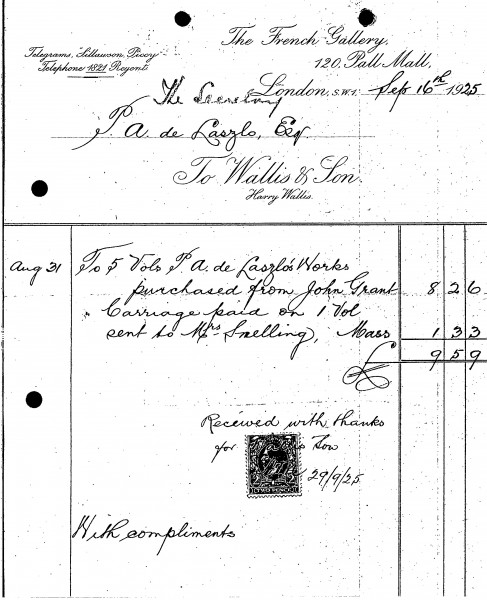 The French Gallery,
120, Pall Mall,
Telephone 1821 Regent
London, S.W.1. Sep 16th 1925
The Secretary
P. A. de Laszlo, Esq
To Wallis & Son.
Harry Wallis.
Aug 31 To 5 Vols P. A. de Laszlo's Works
purchased from John Grant 8 2 6
Carriage paid on 1 Vol
sent to Mrs Snelling, Mass 1 3 3
£ 9 5 9
Received with thanks
for Son
29/9/25
With compliments